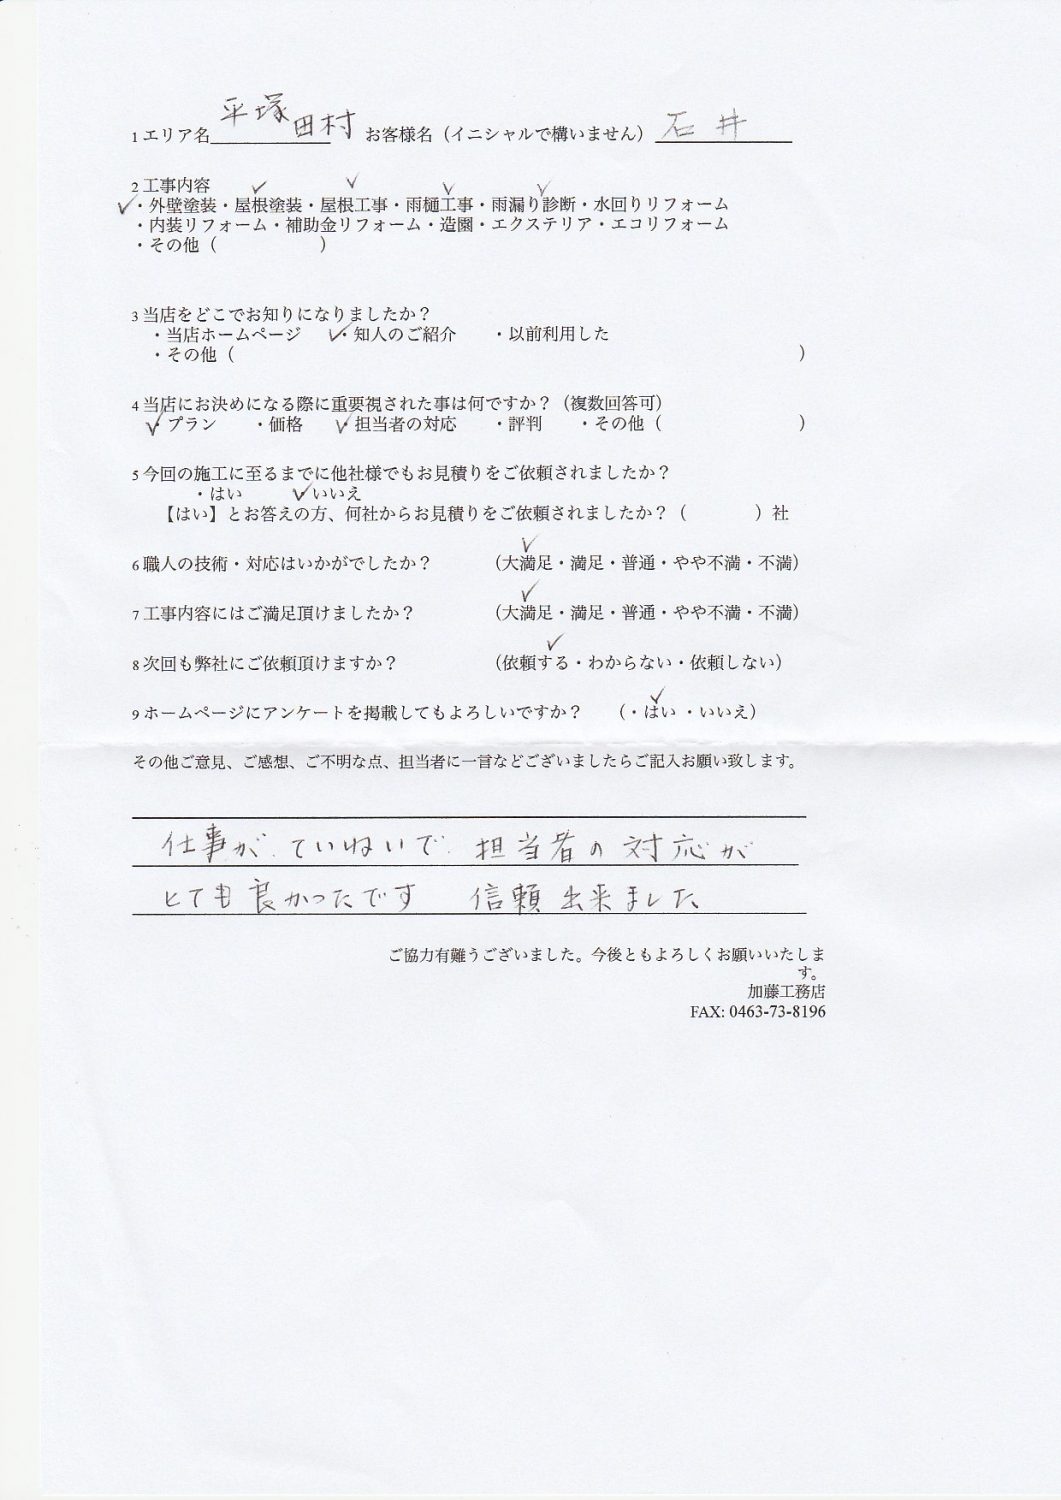 1 エリア名 平塚 田村 お客様名（イニシャルで構いません） 石井
2 工事内容
✓・外壁塗装・屋根塗装・屋根工事・雨樋工事・雨漏り診断・水回りリフォーム
・内装リフォーム・補助金リフォーム・造園・エクステリア・エコリフォーム
・その他（ ）
3 当店をどこでお知りになりましたか？
・当店ホームページ ✓・知人のご紹介 ・以前利用した
・その他（ ）
4 当店にお決めになる際に重要視された事は何ですか？（複数回答可）
✓・プラン ・価格 ✓・担当者の対応 ・評判 ・その他（ ）
5 今回の施工に至るまでに他社様でもお見積りをご依頼されましたか？
・はい ✓・いいえ
【はい】とお答えの方、何社からお見積りをご依頼されましたか？（ ）社
6 職人の技術・対応はいかがでしたか？ （大満足・満足・普通・やや不満・不満）
7 工事内容にはご満足頂けましたか？ （大満足・満足・普通・やや不満・不満）
8 次回も弊社にご依頼頂けますか？ （依頼する・わからない・依頼しない）
9 ホームページにアンケートを掲載してもよろしいですか？ （・はい ・いいえ）
その他ご意見、ご感想、ご不明な点、担当者に一言などございましたらご記入お願い致します。
仕事が ていねいで 担当者の 対応が
とても良かったです 信頼出来ました
ご協力有難うございました。今後ともよろしくお願いいたしま
す。
加藤工務店
FAX: 0463-73-8196